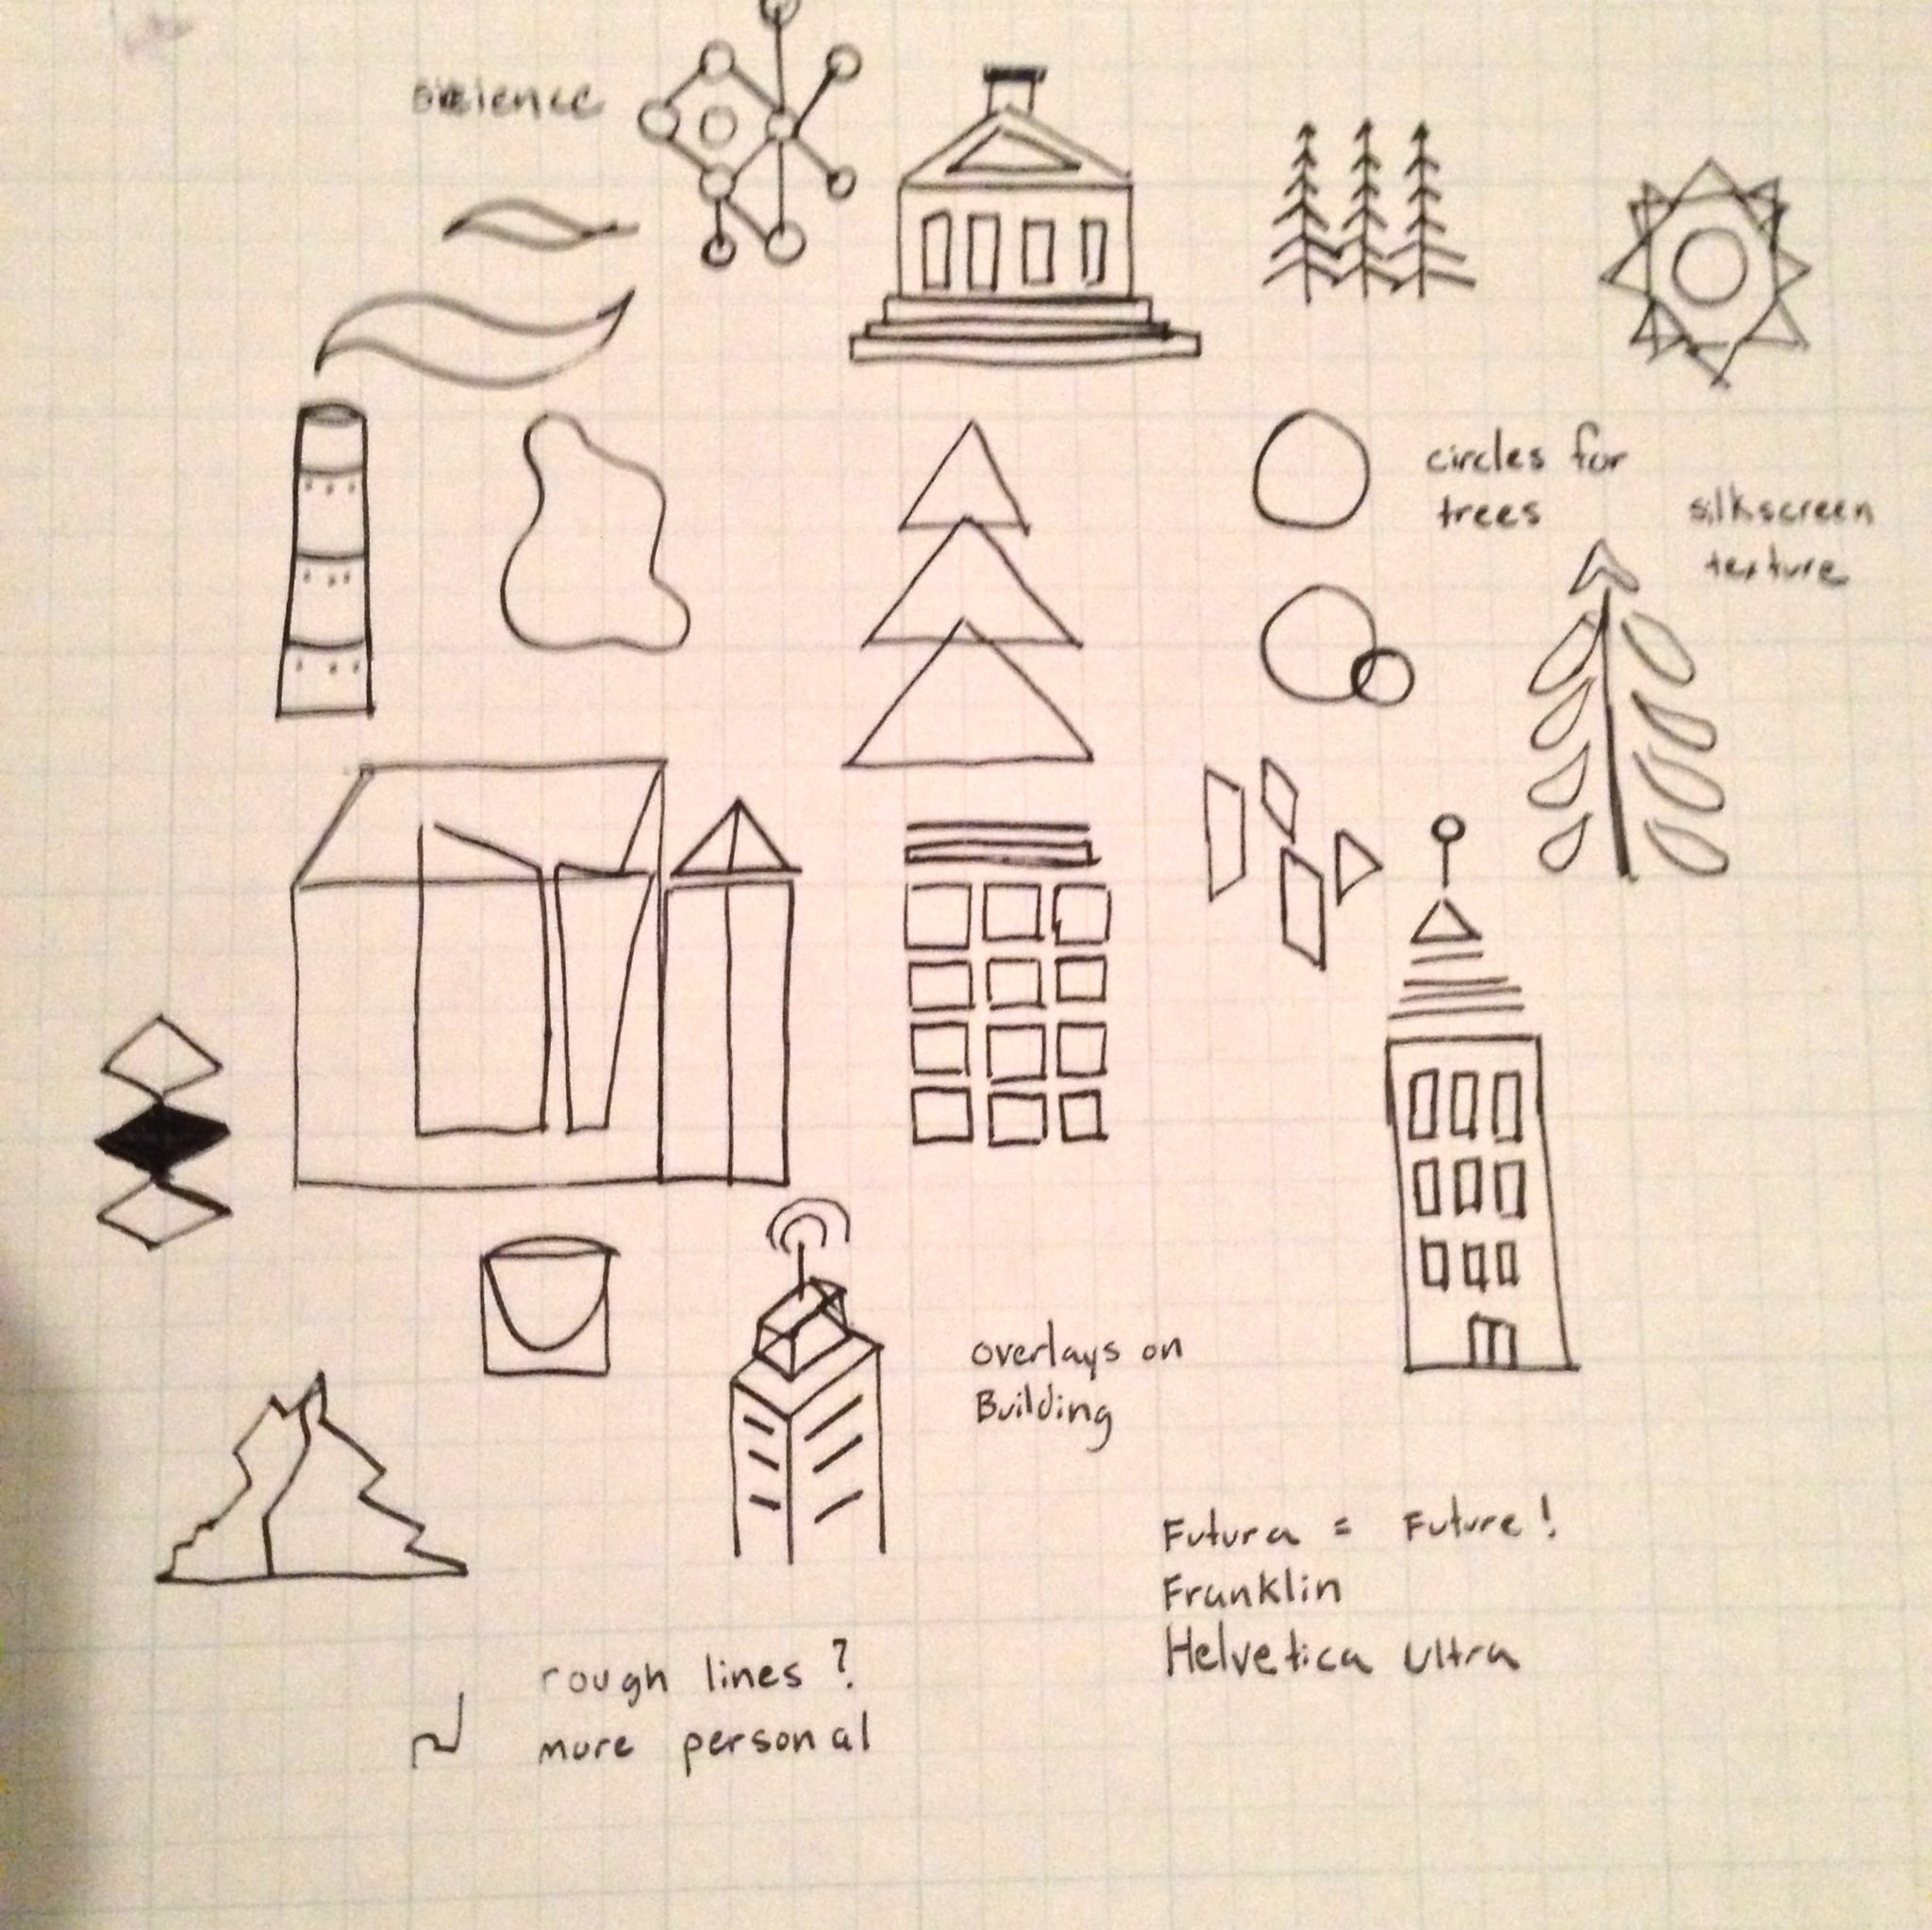 science
circles for
trees
silkscreen
texture
overlays on
Building
Futura = Future!
Franklin
Helvetica Ultra
rough lines?
more personal